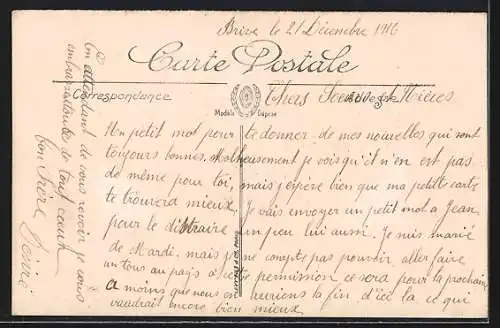 Brive le 21 Décembre 1916
Carte Postale
Correspondance
Adresse
Modèle Déposé
Chers Soeurs et Nièces
Un petit mot pour te donner de mes nouvelles qui sont
toujours bonnes. Malheureusement je vois qu'il n'en est pas
de même pour toi, mais j'espère bien que ma petite carte
te trouvera mieux. Je vais envoyer un petit mot a Jean
pour le distraire un peu lui aussi. Je suis marié
de Mardi. mais je ne compte pas pouvoir aller faire
un tour au pays a cette permission ce sera pour la prochaine
a moins que nous en verrions la fin d'ici la ce qui
vaudrait encore bien mieux
En attendant de vous revoir je vous
embrasse toutes de tout coeur
ton Frère